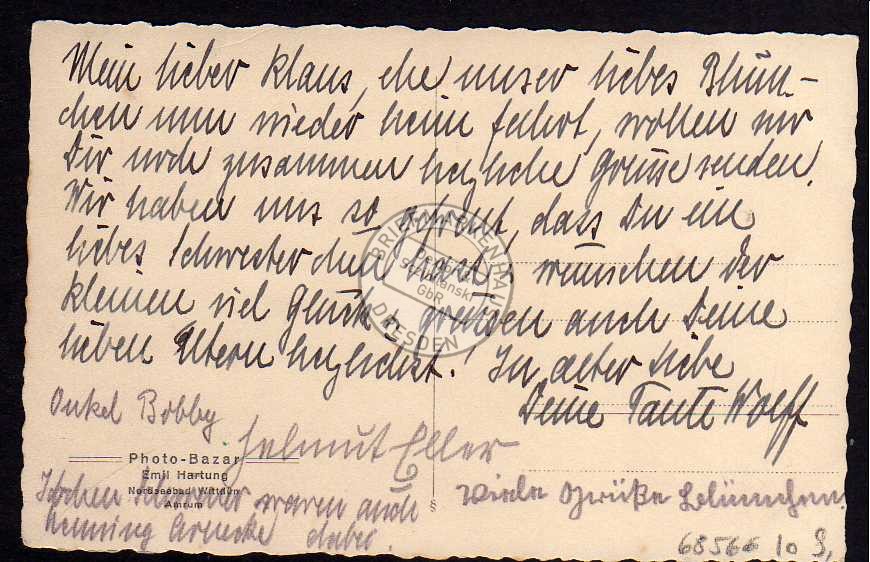 Mein lieber Klaus, ehe unser liebes Blüm-
chen nun wieder heim fährt, wollen wir
Dir noch zusammen herzliche Grüsse senden.
Wir haben uns so gefreut, dass Du ein
liebes Schwesterchen hast, wünschen der
kleinen viel Glück u. grüssen auch Deine
lieben Eltern herzlichst! In alter Liebe
Deine Tante Wolff
Onkel Bobby
Helmut Eller
Photo-Bazar
Emil Hartung
Nordseebad Wittdün
Amrum
Jochen waren auch
Henning Arnecke dabei.
§
Viele Grüße Blümchen.
68566 10 S,
BRIEFMARKENHAUS
DRESDEN
GbR